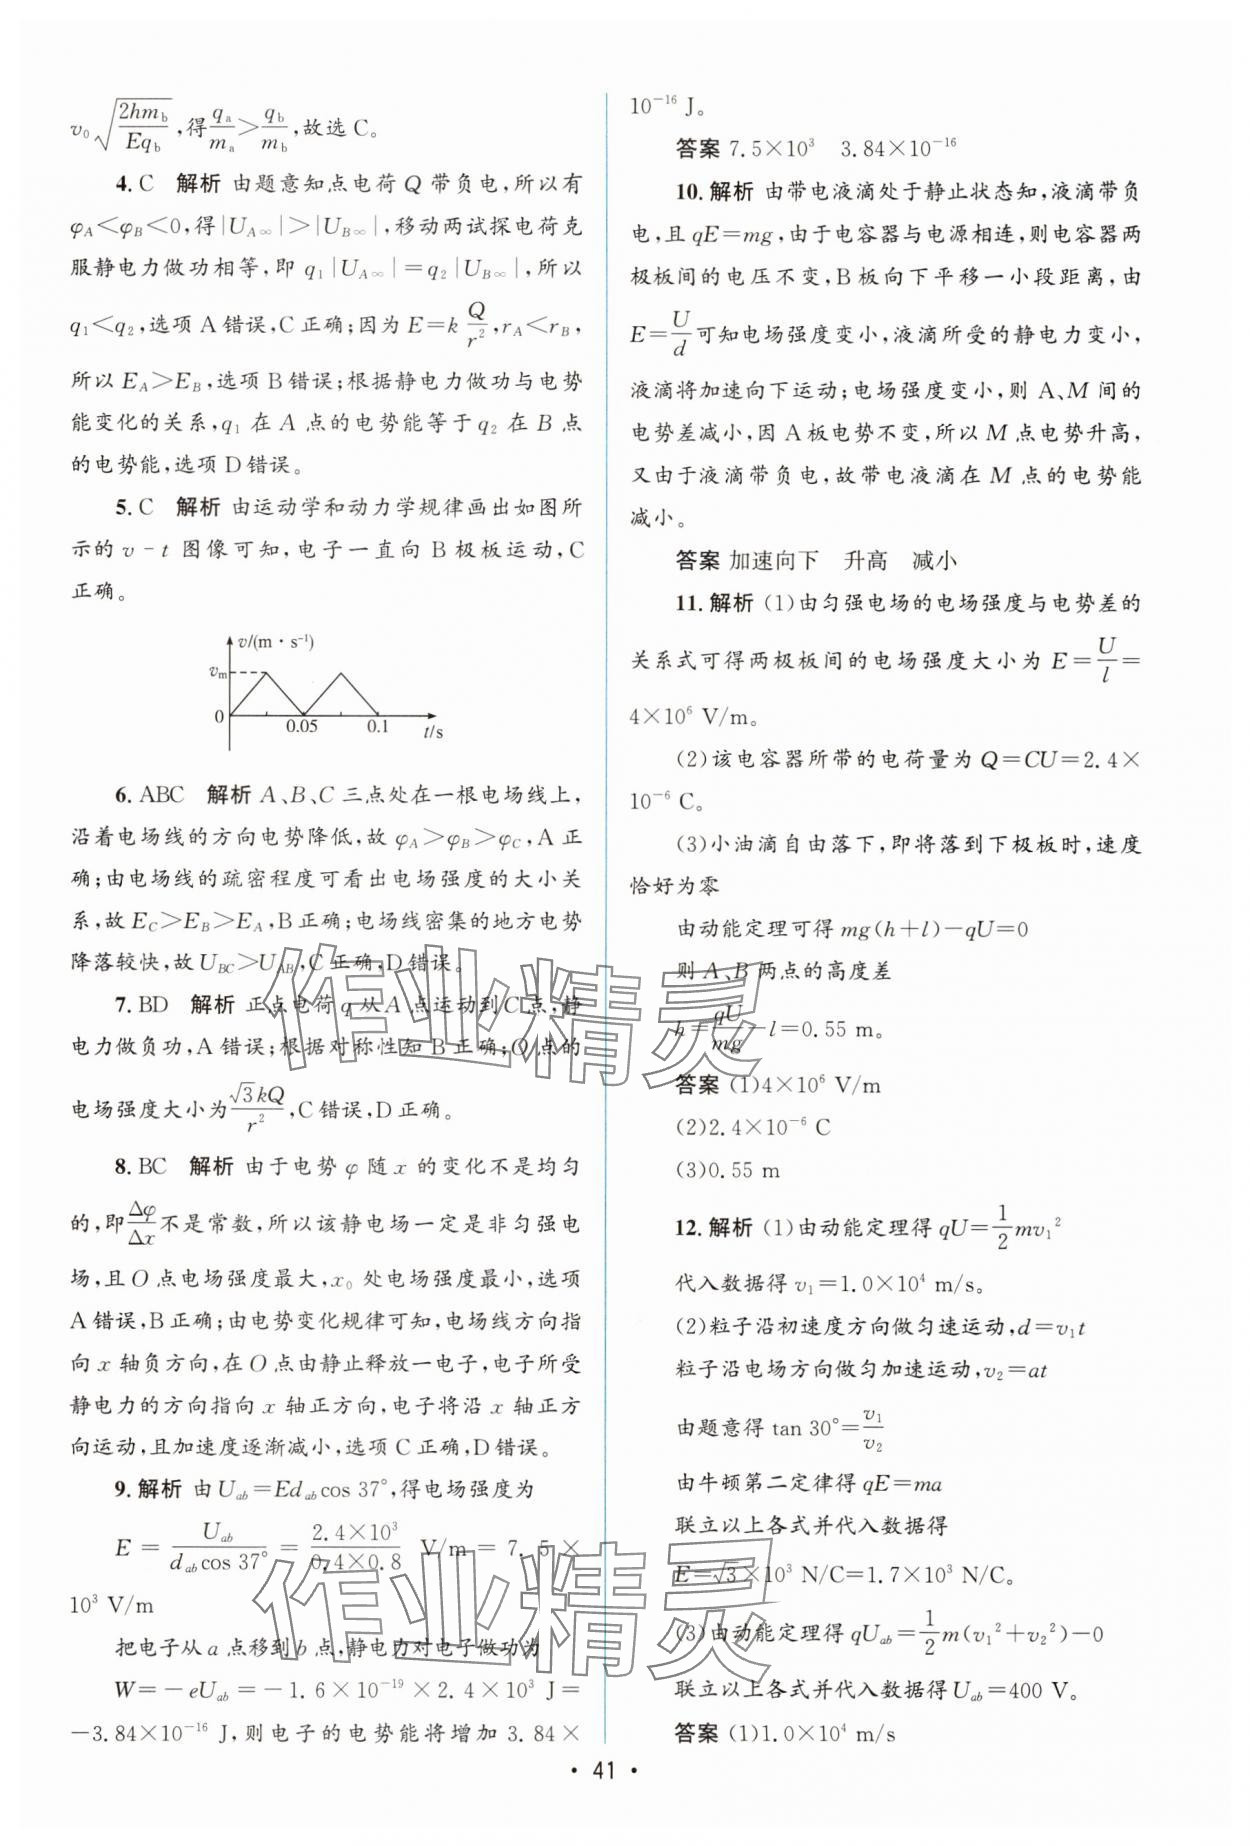 v₀√(2hm_b/Eq_b),得q_a/m_a>q_b/m_b,故选C。
4. C 解析 由题意知点电荷Q带负电,所以有
φ_A<φ_B<0,得|U_A∞|>|U_B∞|,移动两试探电荷克
服静电力做功相等,即q₁|U_A∞|=q₂|U_B∞|,所以
q₁<q₂,选项A错误,C正确;因为E=k Q/r²,r_A<r_B,
所以E_A>E_B,选项B错误;根据静电力做功与电势
能变化的关系,q₁在A点的电势能等于q₂在B点
的电势能,选项D错误。
5. C 解析 由运动学和动力学规律画出如图所
示的v-t图像可知,电子一直向B极板运动,C
正确。
v/(m·s⁻¹)
v_m
0 0.05 0.1 t/s
6. ABC 解析 A、B、C三点处在一根电场线上,
沿着电场线的方向电势降低,故φ_A>φ_B>φ_C,A正
确;由电场线的疏密程度可看出电场强度的大小关
系,故E_C>E_B>E_A,B正确;电场线密集的地方电势
降落较快,故U_BC>U_AB,C正确,D错误。
7. BD 解析 正点电荷q从A点运动到C点,静
电力做负功,A错误;根据对称性知B正确;O点的
电场强度大小为√3kQ/r²,C错误,D正确。
8. BC 解析 由于电势φ随x的变化不是均匀
的,即Δφ/Δx不是常数,所以该静电场一定是非匀强电
场,且O点电场强度最大,x₀处电场强度最小,选项
A错误,B正确;由电势变化规律可知,电场线方向指
向x轴负方向,在O点由静止释放一电子,电子所受
静电力的方向指向x轴正方向,电子将沿x轴正方
向运动,且加速度逐渐减小,选项C正确,D错误。
9. 解析 由U_ab=Ed_ab cos 37°,得电场强度为
E=U_ab/(d_ab cos 37°)=2.4×10³/(0.4×0.8) V/m=7.5×
10³ V/m
把电子从a点移到b点,静电力对电子做功为
W=-eU_ab=-1.6×10⁻¹⁹×2.4×10³ J=
-3.84×10⁻¹⁶ J,则电子的电势能将增加3.84×
10⁻¹⁶ J。
答案 7.5×10³ 3.84×10⁻¹⁶
10. 解析 由带电液滴处于静止状态知,液滴带负
电,且qE=mg,由于电容器与电源相连,则电容器两
极板间的电压不变,B板向下平移一小段距离,由
E=U/d可知电场强度变小,液滴所受的静电力变小,
液滴将加速向下运动;电场强度变小,则A、M间的
电势差减小,因A板电势不变,所以M点电势升高,
又由于液滴带负电,故带电液滴在M点的电势能
减小。
答案 加速向下 升高 减小
11. 解析 (1)由匀强电场的电场强度与电势差的
关系式可得两极板间的电场强度大小为E=U/l=
4×10⁶ V/m。
(2)该电容器所带的电荷量为Q=CU=2.4×
10⁻⁶ C。
(3)小油滴自由落下,即将落到下极板时,速度
恰好为零
由动能定理可得mg(h+l)-qU=0
则A、B两点的高度差
h=qU/mg-l=0.55 m。
答案 (1)4×10⁶ V/m
(2)2.4×10⁻⁶ C
(3)0.55 m
12. 解析 (1)由动能定理得qU=1/2mv₁²
代入数据得v₁=1.0×10⁴ m/s。
(2)粒子沿初速度方向做匀速运动,d=v₁t
粒子沿电场方向做匀加速运动,v₂=at
由题意得tan 30°=v₁/v₂
由牛顿第二定律得qE=ma
联立以上各式并代入数据得
E=√3×10³ N/C=1.7×10³ N/C。
(3)由动能定理得qU_ab=1/2m(v₁²+v₂²)-0
联立以上各式并代入数据得U_ab=400 V。
答案 (1)1.0×10⁴ m/s
作业精灵
作业精灵
· 41 ·